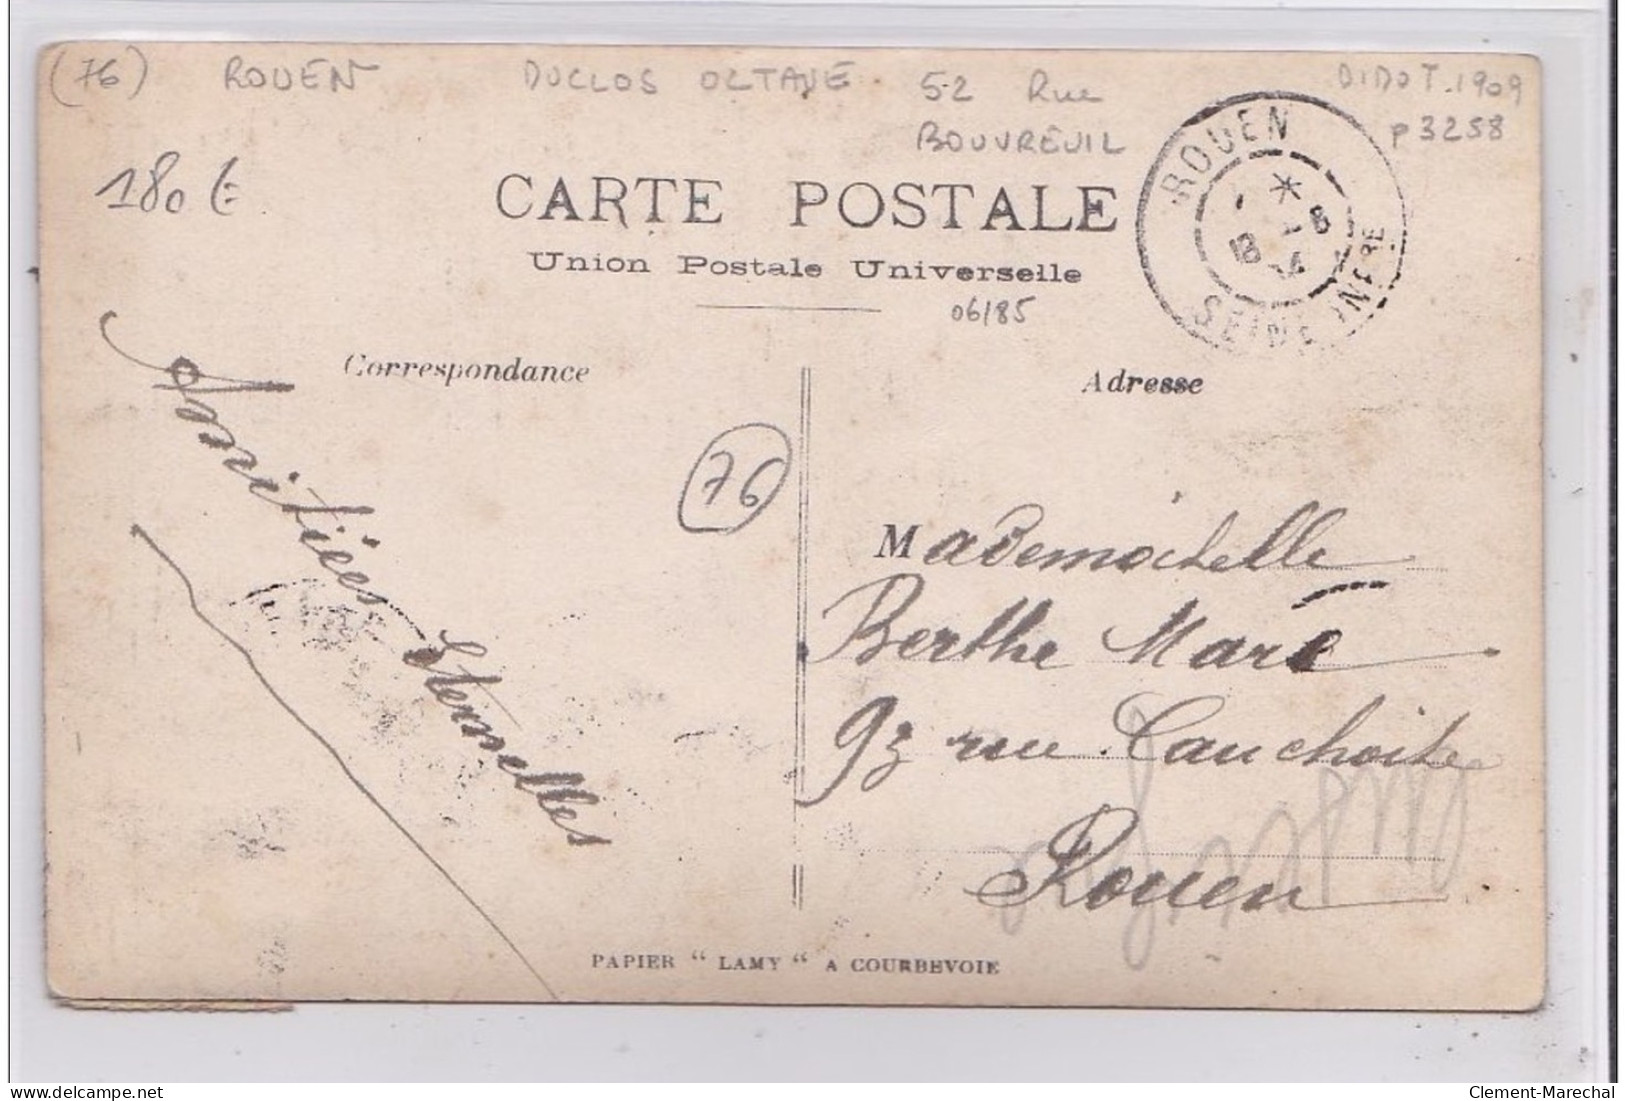 (76) ROUEN DUCLOS OCTAVE. 52 Rue BOUVREUIL
DIDOT.1909
P 3258
180 €
CARTE POSTALE
Union Postale Universelle
06/85
ROUEN
SEINE INFRE
Correspondance
Adresse
76
Amitiés
éternelles
Mademoiselle
Berthe Mare
93 rue Cauchoise
Rouen
PAPIER “ LAMY “ A COURBEVOIE
delcampe.net
Clement-Marechal